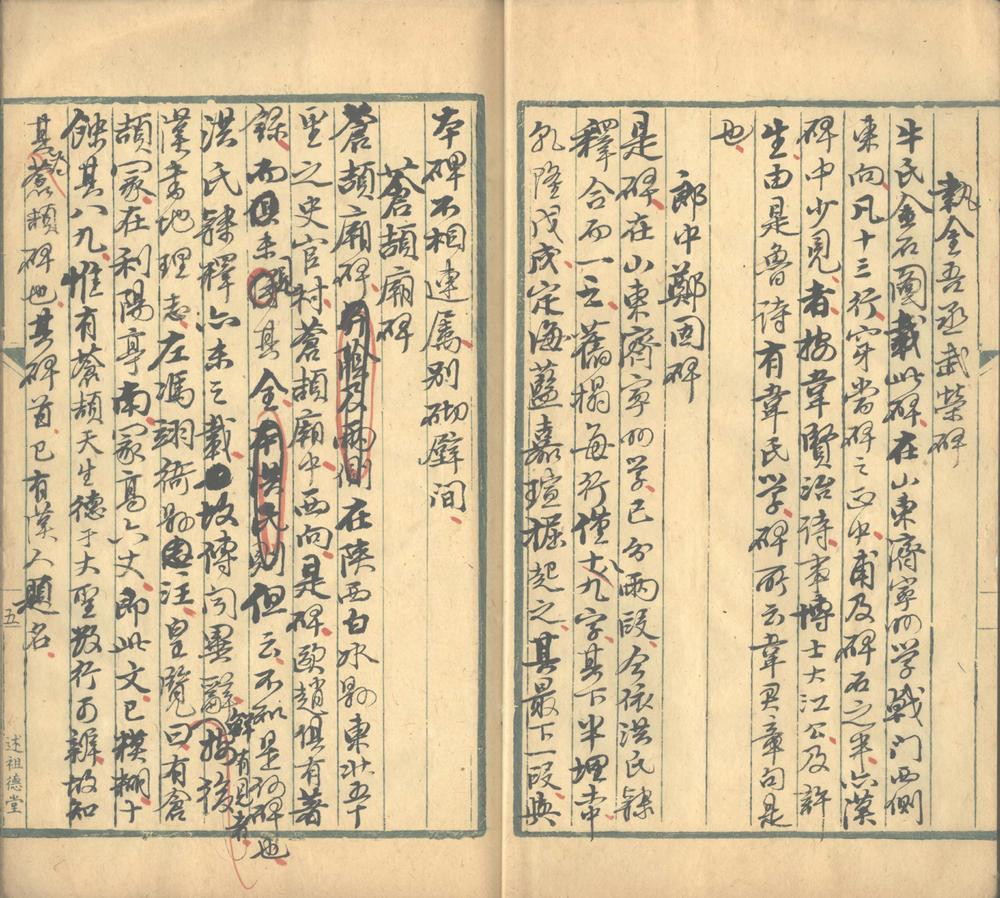 執金吾丞武榮碑
牛氏金石圖載此碑在山東濟寧州学戟门西側
東向凡十三行穿當碑之正中甫及碑石之半六漢
碑中少見者按韋賢治诗事博士大江公及許
生由是魯诗有韋氏学碑所云韋君章句是
也
郎中鄭固碑
是碑在山東濟寧州学已分兩段今依洪氏隸
釋合而一之舊榻每行僅十九字其下半埋土中
乾隆戊戌定海藍嘉瑄掘起之其最下一段與
本碑不相連属别砌壁间
蒼頡廟碑
蒼頡廟碑并陰及兩側在陕西白水縣東北五十
里之史官村蒼頡廟中西向是碑歐趙俱有著
錄而俱未見其全本洪氏則但云不知是何碑也
洪氏隸釋亦未之載故傳闻異辭鲜有見者按後
漢書地理志左馮翊衙縣注皇覽曰有倉
頡冢在利陽亭南冢高六丈即此文已模糊十
蝕其八九惟有蒼頡天生德于大聖数行可辨故知
其為蒼頡碑也其碑首已有漢人題名
五
述祖德堂